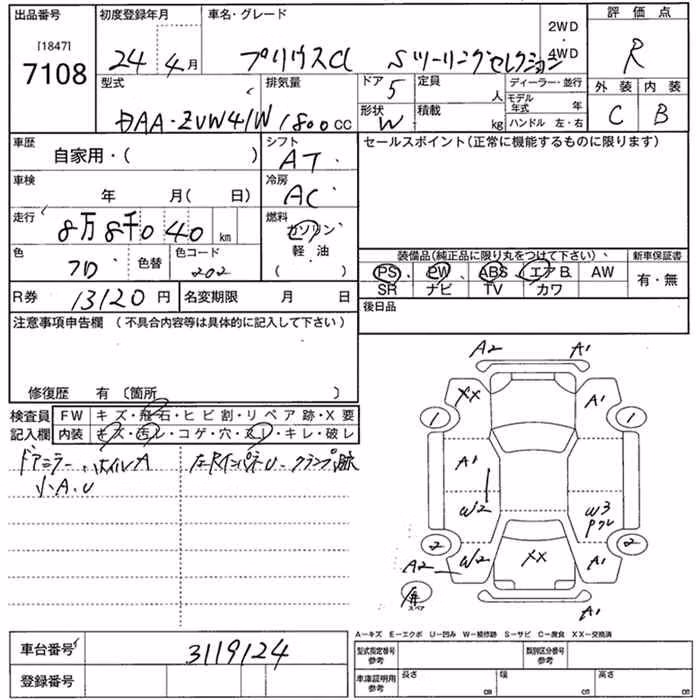 出品番号 初度登録年月 車名・グレード 2WD 評価点
[1847]
7108 24年4月 プリウスα Sツーリングセレクション 4WD R
型式 排気量 ドア 5 定員 人 ディーラー・並行 外装 内装
モデル年式 年
DAA-ZVW41W 1800cc 形状 W 積載 kg ハンドル 左・右 C B
車歴 自家用・( ) シフト AT セールスポイント(正常に機能するものに限ります)
車検 年 月( 日) 冷房 AC
走行 8万8千040 km 燃料 ガソリン・軽・油 ( )
色 クロ 色替 色コード 202 装備品(純正品に限り丸をつけて下さい) 新車保証書
PS PW ABS エアB. AW 有・無
SR ナビ TV カワ
R券 13120円 名変期限 月 日 後日品
注意事項申告欄 (不具合内容等は具体的に記入して下さい)
修復歴 有〔箇所 〕
検査員 FW キズ・飛石・ヒビ割・リペア跡・X要
記入欄 内装 キズ・汚レ・コゲ・穴・スレ・キレ・破レ
ドアミラー・ホイルA 左Rインパネ U・クランプ跡
小A.U
A2 A1
XX A1
1 1
A1
W2 W3
Pクレ
2 W2 XX A1 2
A2
スペア A1
A−キズ E−エクボ U−凹み W−補修跡 S−サビ C−腐食 XX−交換済
車台番号 3119124 型式指定番号 参考 類別区分番号 参考
登録番号 車庫証明用 参考 長さ cm 幅 cm 高さ cm